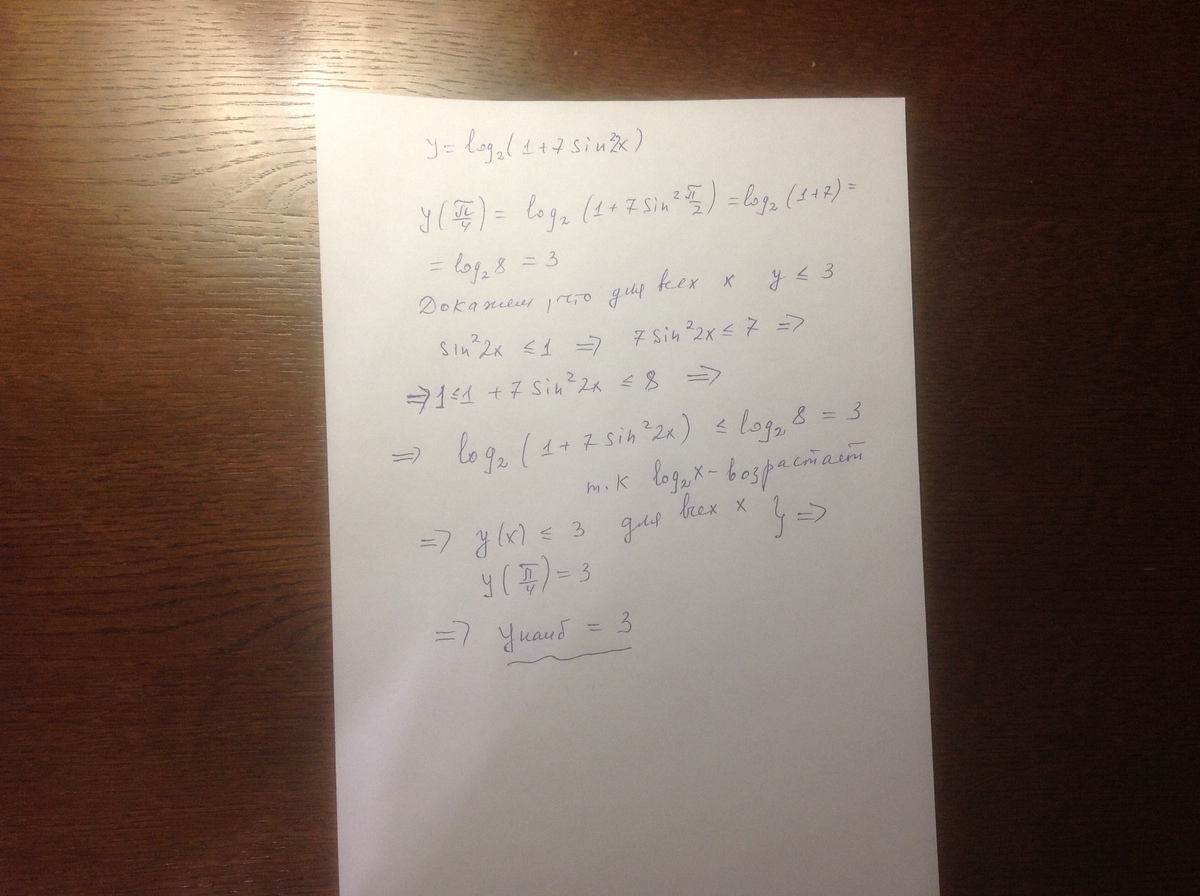 y = log₂(1+7sin²2x)
y(π/4) = log₂(1+7sin²π/2) = log₂(1+7) =
= log₂8 = 3
Докажем, что для всех x y ≤ 3
sin²2x ≤ 1 => 7sin²2x ≤ 7 =>
=> 1≤1+7sin²2x ≤ 8 =>
=> log₂(1+7sin²2x) ≤ log₂8 = 3
т.к log₂x - возрастает
=> y(x) ≤ 3 для всех x } =>
y(π/4) = 3
=> yнаиб = 3